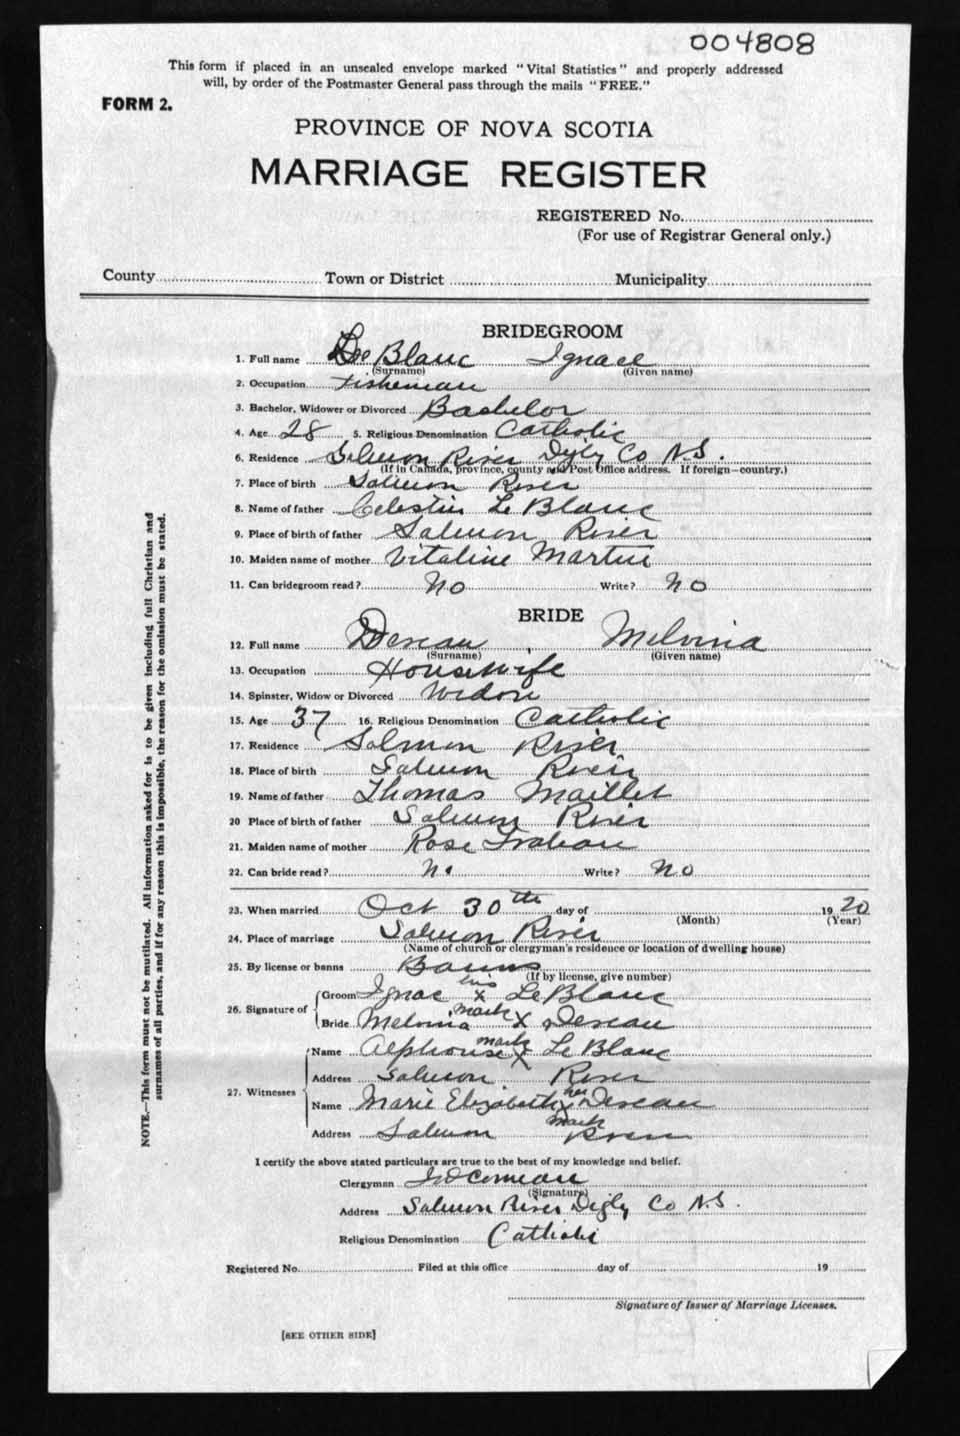 004808
This form if placed in an unsealed envelope marked "Vital Statistics" and properly addressed
will, by order of the Postmaster General pass through the mails "FREE."
FORM 2.
PROVINCE OF NOVA SCOTIA
MARRIAGE REGISTER
REGISTERED No.
(For use of Registrar General only.)
County Town or District Municipality
BRIDEGROOM
1. Full name Le Blanc Ignace
(Surname) (Given name)
2. Occupation Fisherman
3. Bachelor, Widower or Divorced Bachelor
4. Age 28 5. Religious Denomination Catholic
6. Residence Salmon River Digby Co N.S.
(If in Canada, province, county and Post Office address. If foreign—country.)
7. Place of birth Salmon River
8. Name of father Celestin Le Blanc
9. Place of birth of father Salmon River
10. Maiden name of mother Vitaline Martin
11. Can bridegroom read? No Write? No
BRIDE
12. Full name Deveau Melvina
(Surname) (Given name)
13. Occupation Housewife
14. Spinster, Widow or Divorced Widow
15. Age 37 16. Religious Denomination Catholic
17. Residence Salmon River
18. Place of birth Salmon River
19. Name of father Thomas Maillet
20 Place of birth of father Salmon River
21. Maiden name of mother Rose Trahan
22. Can bride read? No Write? No
23. When married Oct 30th day of 1920
(Month) (Year)
24. Place of marriage Salmon River
(Name of church or clergyman's residence or location of dwelling house)
25. By license or banns Banns
(If by license, give number)
26. Signature of
Groom Ignac his x Le Blanc
mark
Bride Melvina X Deveau
27. Witnesses
Name Alphonse mark X Le Blanc
Address Salmon River
Name Marie Elizabeth her x Deveau
mark
Address Salmon River
I certify the above stated particulars are true to the best of my knowledge and belief.
Clergyman Comeau
(Signature)
Address Salmon River Digby Co N.S.
Religious Denomination Catholic
Registered No. Filed at this office day of 19
Signature of Issuer of Marriage Licenses.
[SEE OTHER SIDE]
NOTE.—This form must not be mutilated. All information asked for is to be given including full Christian and
surnames of all parties, and if for any reason this is impossible, the reason for the omission must be stated.